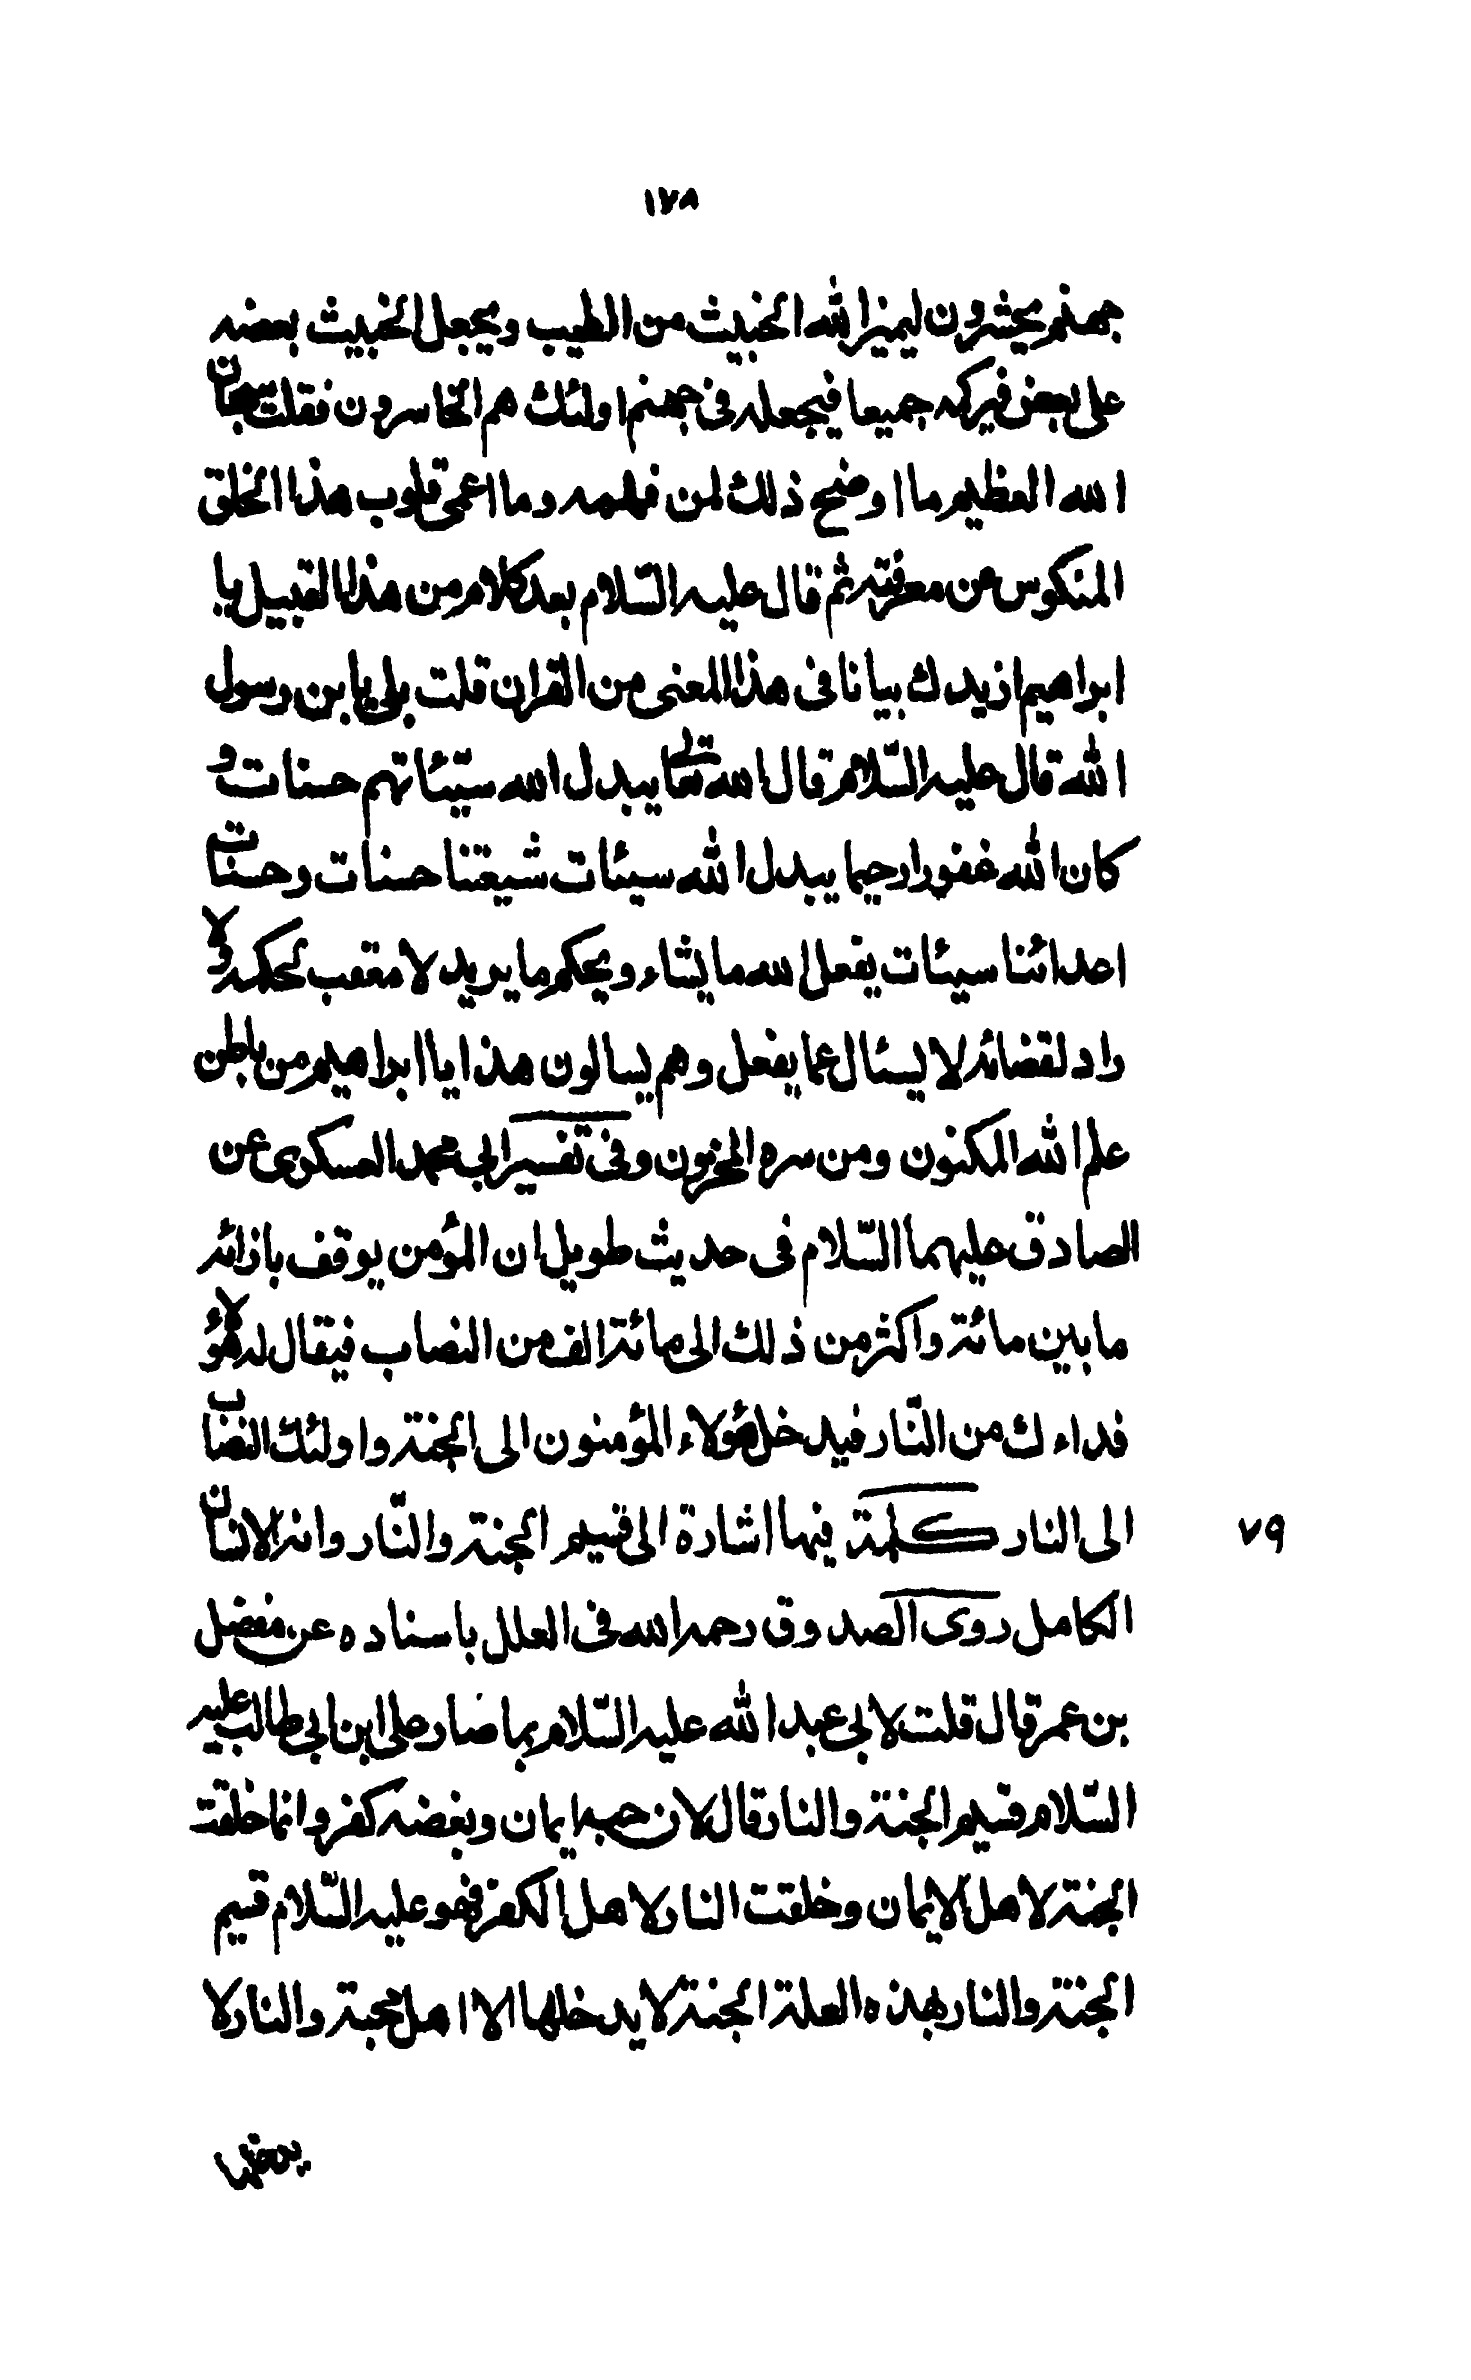 ١٧٨
جهنم يحشرون ليميز الله الخبيث من الطيب ويجعل الخبيث بعضه
على بعض فيركمه جميعا فيجعله فى جهنم اولئك هم الخاسرون فقلت سبحان
الله العظيم ما اوضح ذلك لمن فهمه وما اعمى قلوب هذا الخلق
المنكوس عن معرفته ثم قال عليه السّلام بعد كلام من هذا القبيل يا
ابراهيم ازيدك بيانا فى هذا المعنى من القران قلت بلى يا بن رسول
الله قال عليه السّلام قال الله تعالى يبدل الله سيّئاتهم حسنات و
كان الله غفورا رحيما يبدل الله سيئات شيعتنا حسنات وحسنات
اعدائنا سيئات يفعل الله ما يشاء ويحكم ما يريد لا معقب لحكمه ولا
راد لقضائه لا يسئال عما يفعل وهم يسالون هذا يا ابراهيم من باطن
علم الله المكنون ومن سره المخزون وفى تفسير ابى محمد العسكرى عن
الصادق عليهما السّلام فى حديث طويل ان المؤمن يوقف بازائه
ما بين مائة واكثر من ذلك الى مائة الف من النصاب فيقال له هؤلاء
فداءك من النّار فيدخل هؤلاء المؤمنون الى الجنة واولئك النصاب
الى النار كلمة فيها اشارة الى قسيم الجنة والنّار وانه الانسان
٧٩
الكامل روى الصدوق رحمه الله فى العلل باسناده عن مفضل
بن عمر قال قلت لابى عبد الله عليه السّلام بما صار على ابن ابى طالب عليه
السّلام قسيم الجنة والنار قال لان حبه ايمان وبغضه كفر وانما خلقت
الجنة لاهل الايمان وخلقت النار لاهل الكفر فهو عليه السّلام قسيم
الجنة والنار بهذه العلة الجنة لا يدخلها الا اهل محبة والنار لا